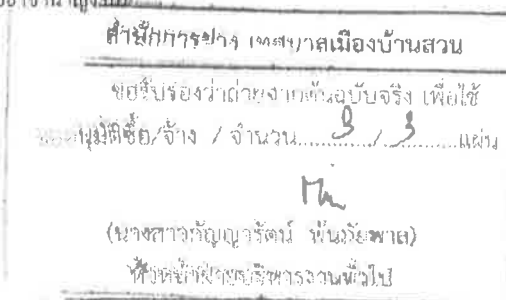 สำนักการช่าง เทศบาลเมืองบ้านสวน
ขอรับรองว่าถ่ายจากต้นฉบับจริง เพื่อใช้
ขออนุมัติซื้อ/จ้าง / จำนวน......3../..3......แผ่น
(นางสาวกัญญารัตน์ พันภัยพาล)
หัวหน้าฝ่ายบริหารงานทั่วไป